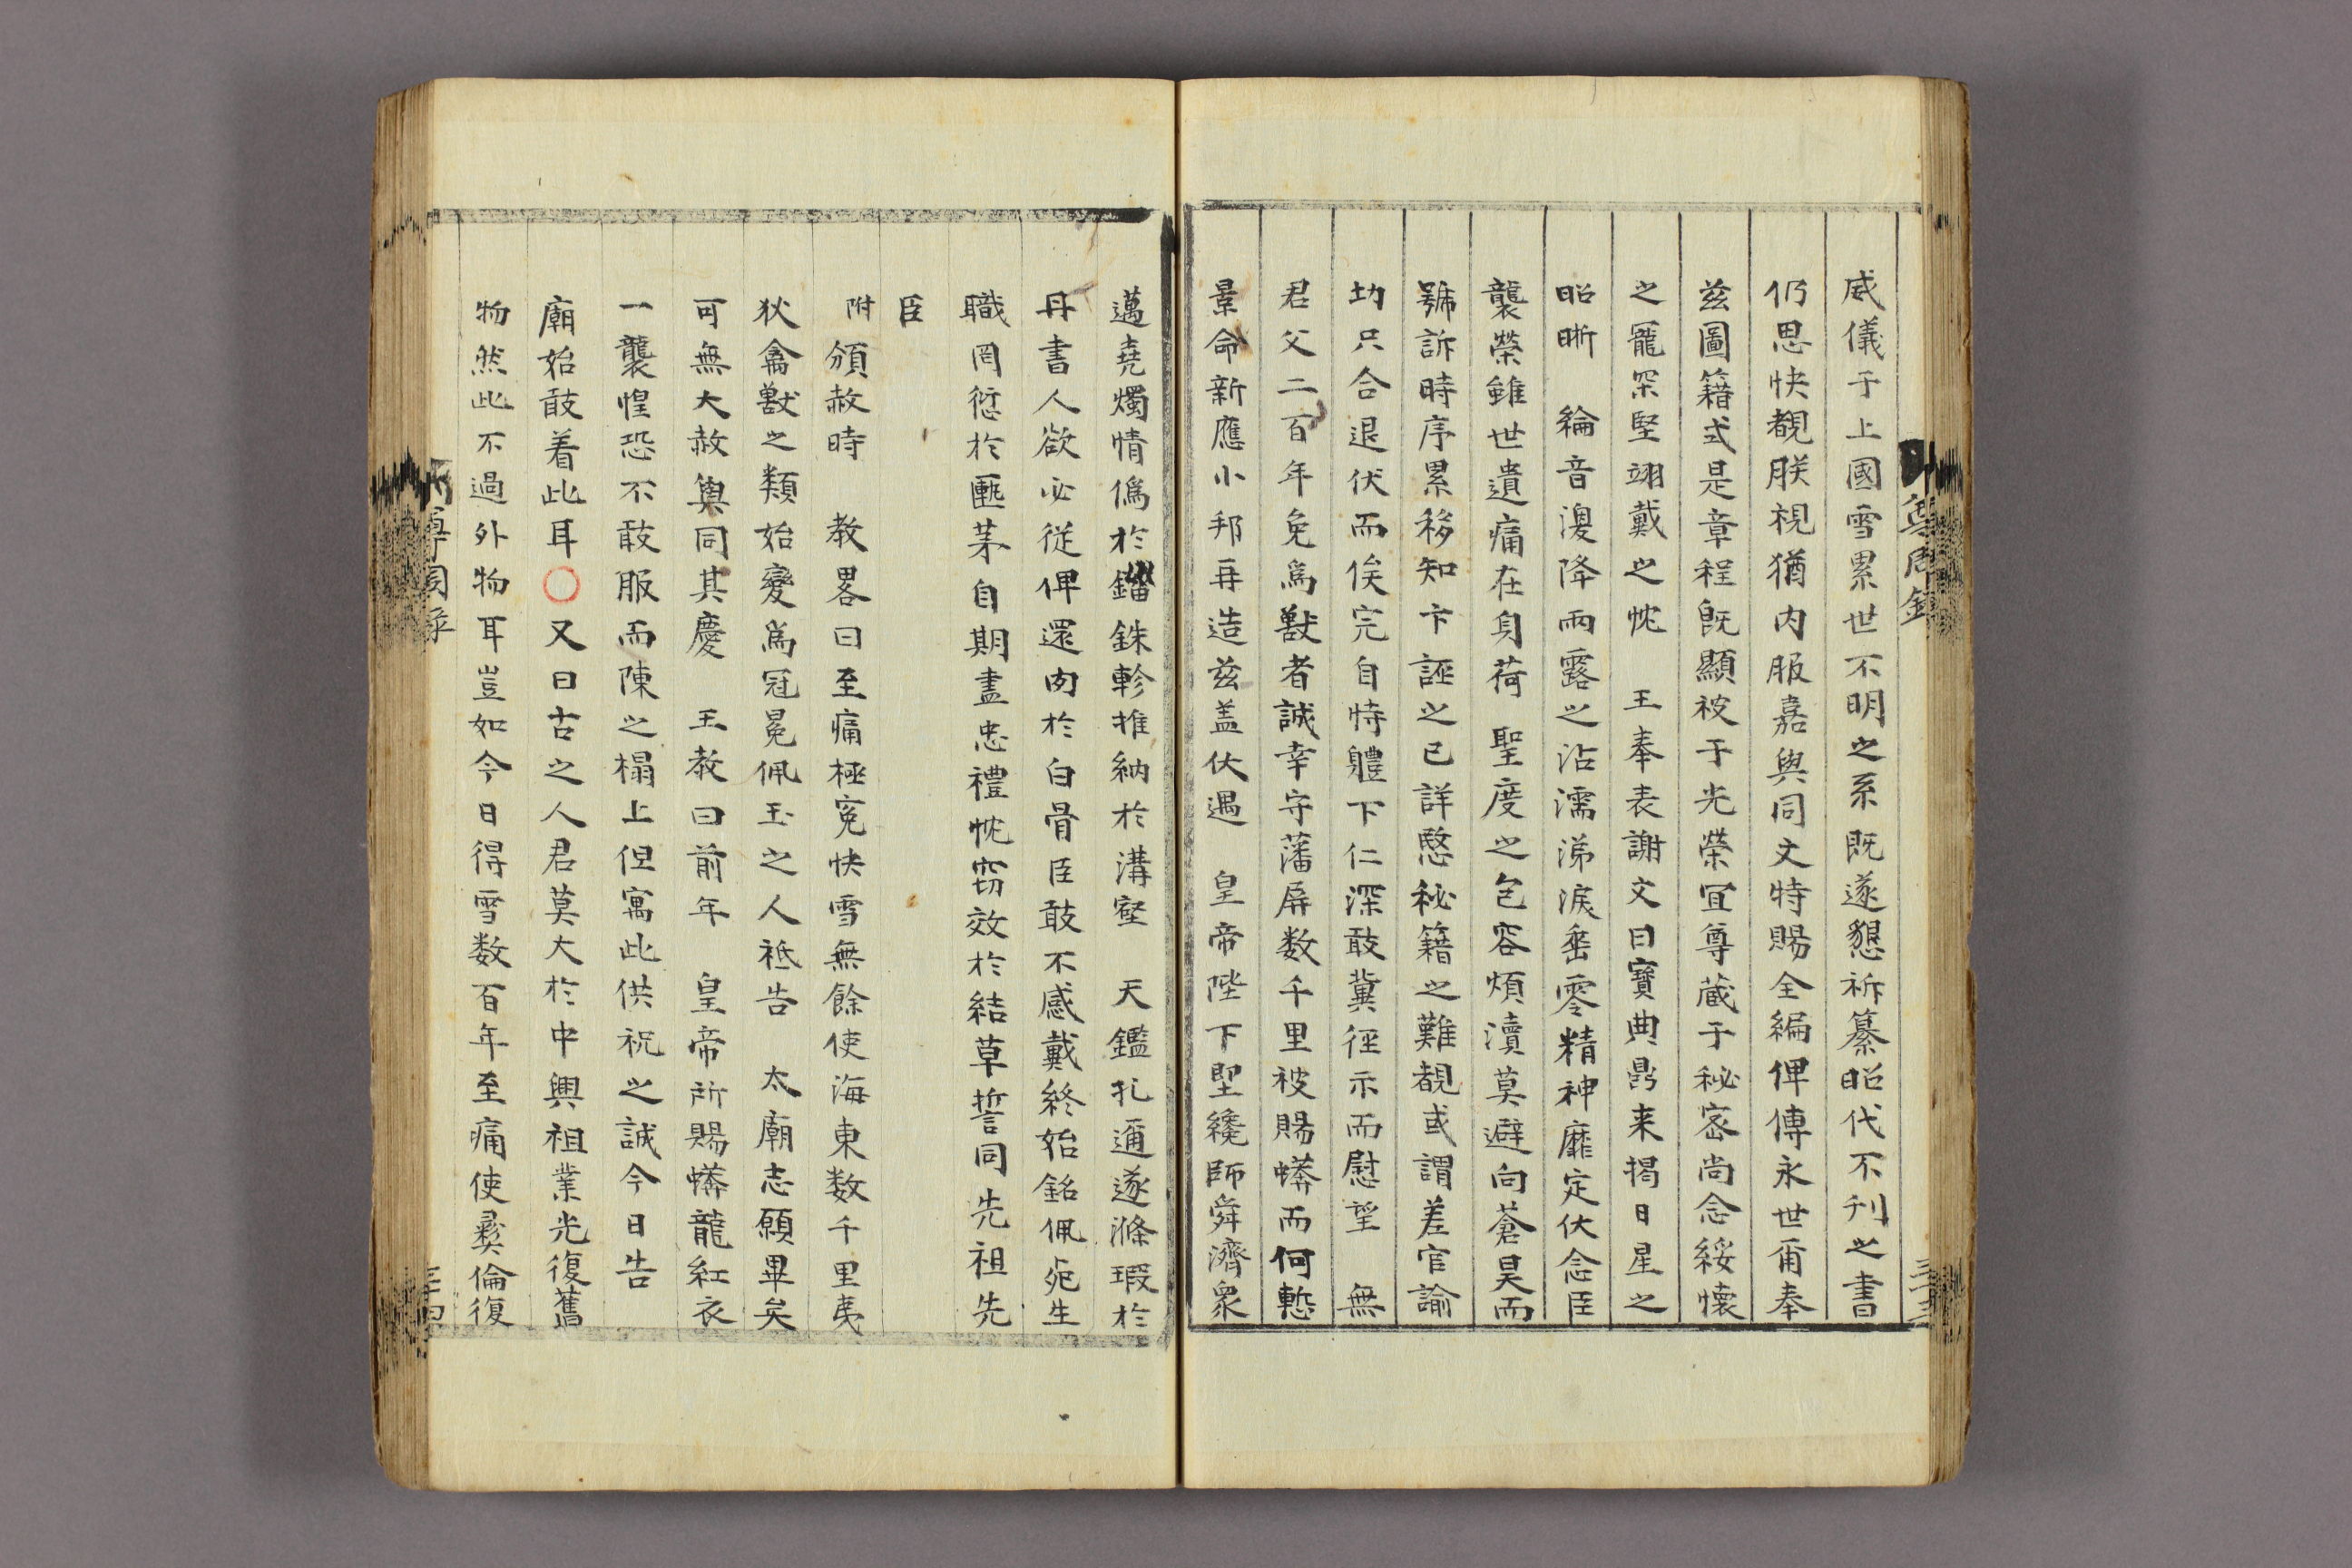 威儀于上國雪累世不明之系既遂懇祈纂昭代不刊之書
仍思快覩朕視猶內服嘉與同文特賜全編俾傳永世甭奉
玆圖籍式是章程旣顯被于光榮宜尊蔵于秘宻尚念綏懷
之寵罙堅翊戴之忱　王奉表謝文曰寶典鼎来揭日星之
昭晣　綸音渙降雨露之沾濡涕淚垂零精神靡定伏念臣
襲榮雖世遺痛在身荷　聖度之包容煩瀆莫避向蒼昊而
號訴時序累移知卞誣之已詳慇秘籍之難覩或謂差官諭
功只合退伏而俟完自恃軆下仁深敢冀徑示而慰望　無
君父二百年免爲獸者誠幸守藩屏数千里被賜蟒而何慙
景命新應小邦再造玆盖伏遇　皇帝陛下聖纔師舜濟衆
邁堯燭情僞於錙銖軫推納於溝壑　天鑑孔邇遂滌瑕於
丹書人欲必從俾還肉於白骨臣敢不感戴終始銘佩死生
職罔愆於匭茅自期盡忠禮忱窃效於結草誓同先祖先
臣
附　頒赦時　教畧曰至痛極寃快雪無餘使海東数千里夷
狄禽獸之類始變爲冠冕佩玉之人祗告　太廟志願畢矣
可無大赦輿同其慶　王教曰前年　皇帝所賜蟒龍紅衣
一襲惶恐不敢服而陳之榻上但寓此供祝之誠今日告
廟始敢着此耳○又曰古之人君莫大於中興祖業光復舊
物然此不過外物耳豈如今日得雪数百年至痛使彛倫復
尊周錄
三十三
尊周录
三十四